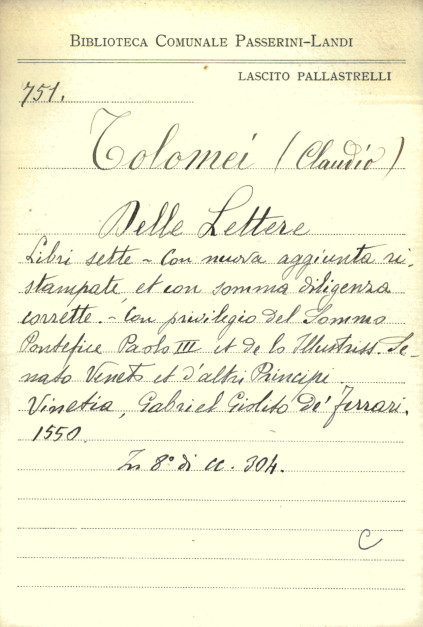 BIBLIOTECA COMUNALE PASSERINI-LANDI
LASCITO PALLASTRELLI
751.
Tolomei (Claudio)
Delle Lettere
Libri sette - Con nuova aggiunta ri-
stampate et con somma diligenza
corrette. - Con privilegio del Sommo
Pontefice Paolo III et de lo Illustriss. Se-
nato Veneto et d'altri Principi
Vinetia, Gabriel Giolito De' Ferrari.
1550.
In 8° di cc. 304.
C